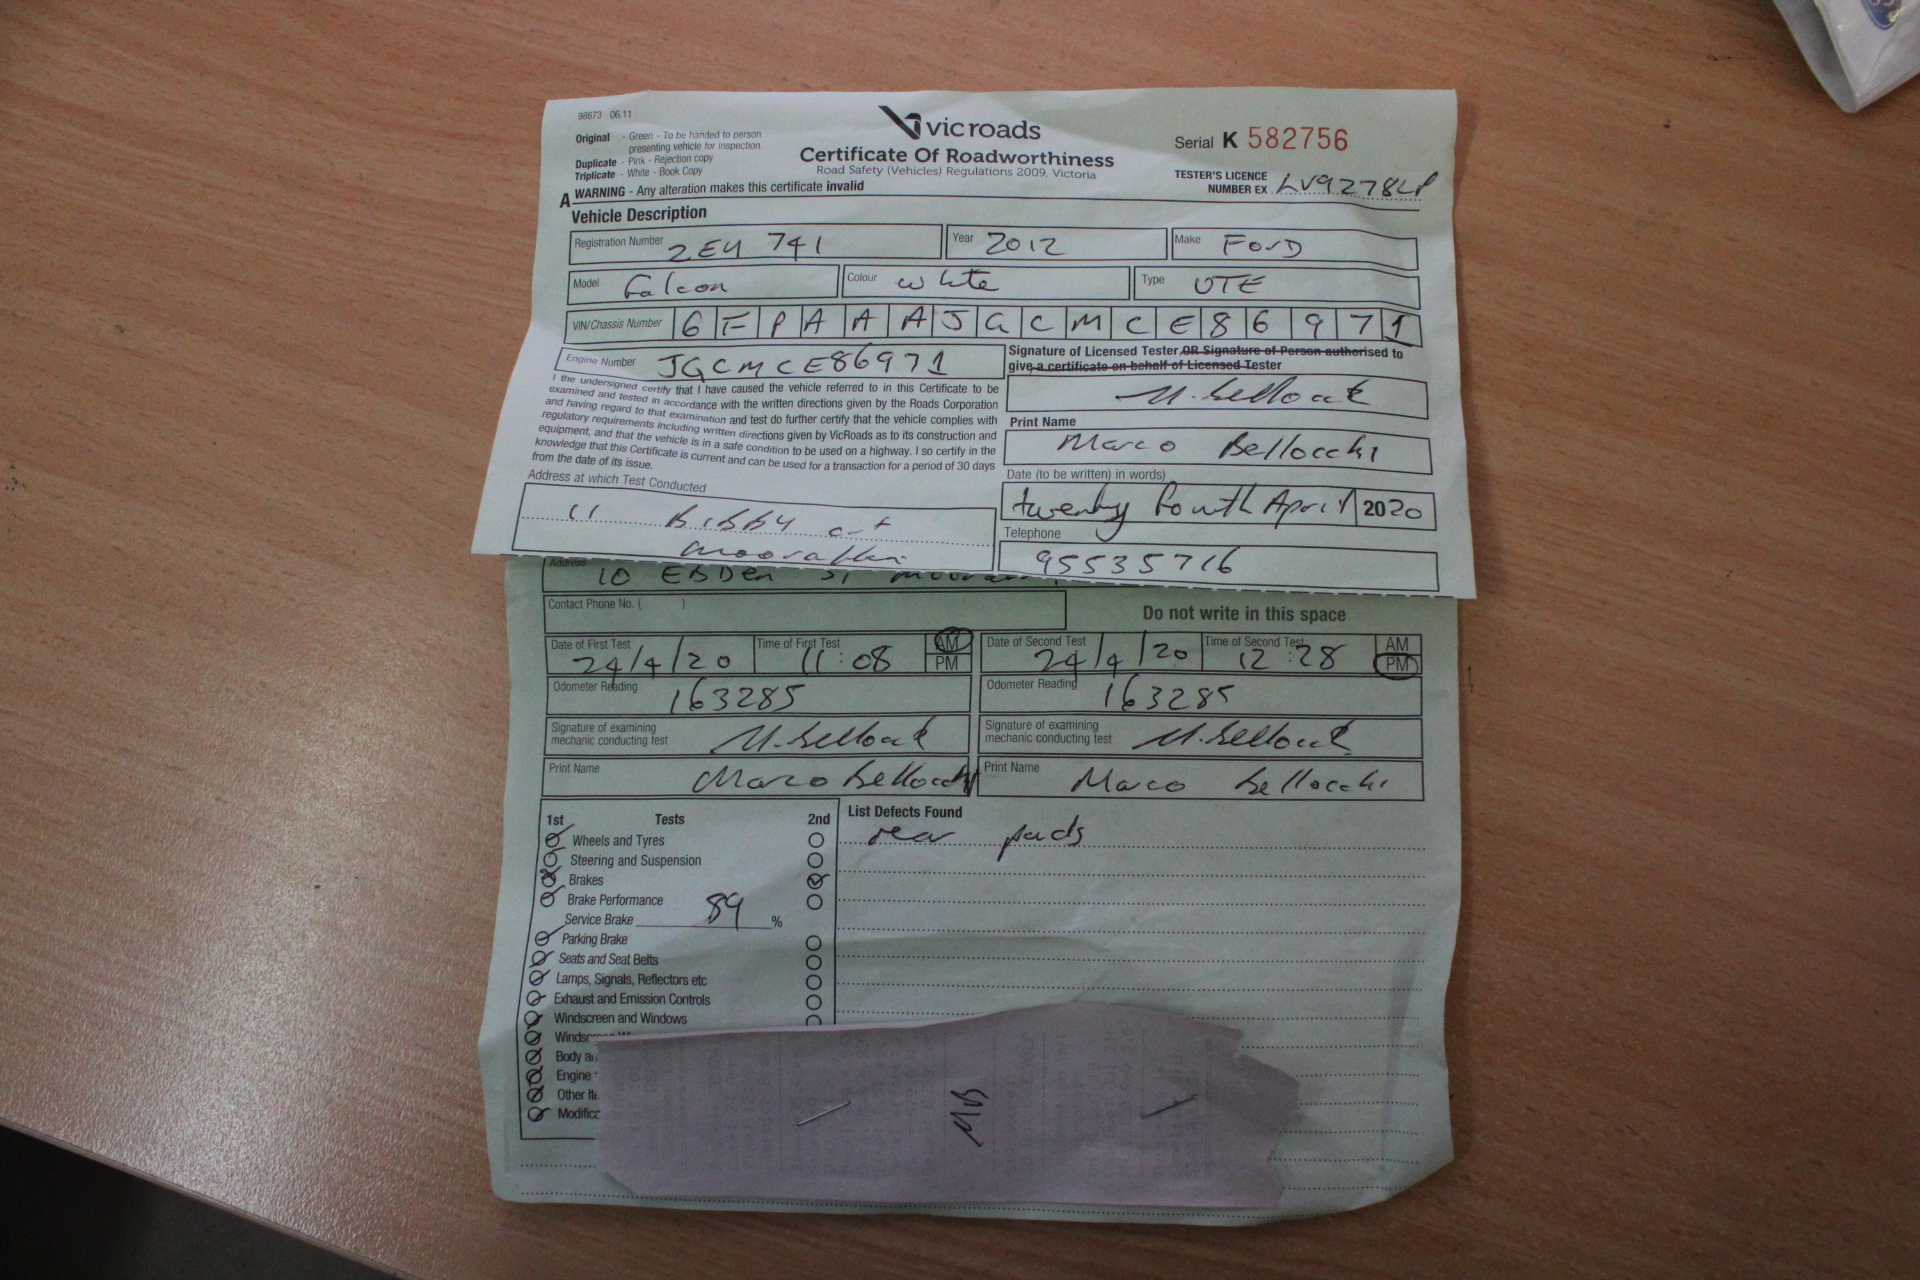 98673 06.11
Original - Green - To be handed to person
presenting vehicle for inspection.
Duplicate - Pink - Rejection copy
Triplicate - White - Book Copy
vicroads
Certificate Of Roadworthiness
Road Safety (Vehicles) Regulations 2009, Victoria
Serial K 582756
TESTER'S LICENCE
NUMBER EX
A WARNING - Any alteration makes this certificate invalid
Vehicle Description
Registration Number 741 Year 2012 Make Ford
Model Falcon Colour white Type UTE
VIN/Chassis Number 6 F P A A A J G C M C E 8 6 9 7 1
Engine Number JGCMCE86971
Signature of Licensed Tester OR Signature of Person authorised to
give a certificate on behalf of Licensed Tester
I the undersigned certify that I have caused the vehicle referred to in this Certificate to be
examined and tested in accordance with the written directions given by the Roads Corporation
and having regard to that examination and test do further certify that the vehicle complies with
regulatory requirements including written directions given by VicRoads as to its construction and
equipment, and that the vehicle is in a safe condition to be used on a highway. I so certify in the
knowledge that this Certificate is current and can be used for a transaction for a period of 30 days
from the date of its issue.
Print Name
Marco Bellocchi
Date (to be written) in words)
twenty fourth April 2020
Address at which Test Conducted
11 Bibby
Telephone
95535716
Address 10 EBDEN ST
Contact Phone No. ( )
Do not write in this space
Date of First Test 24/4/20 Time of First Test 11:08 AM PM
Date of Second Test 24/4/20 Time of Second Test 12:28 AM PM
Odometer Reading 163285
Odometer Reading 163285
Signature of examining
mechanic conducting test M. Bellocchi
Signature of examining
mechanic conducting test M. Bellocchi
Print Name Marco Bellocchi
Print Name Marco Bellocchi
1st Tests 2nd
Wheels and Tyres
Steering and Suspension
Brakes
Brake Performance
Service Brake 89 %
Parking Brake
Seats and Seat Belts
Lamps, Signals, Reflectors etc
Exhaust and Emission Controls
Windscreen and Windows
Body
Engine
Other
List Defects Found
rear pads
MB